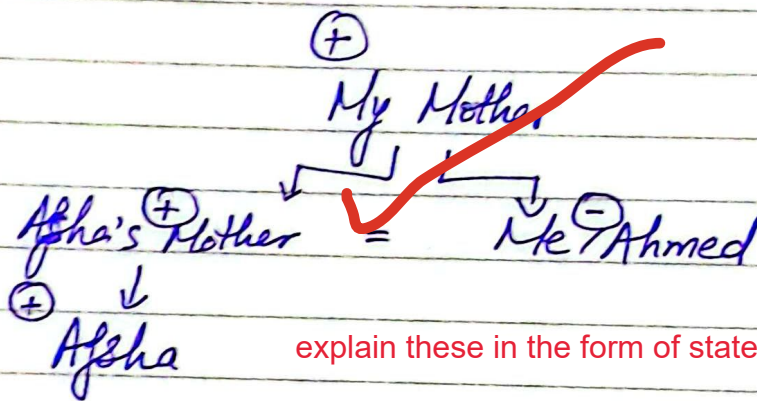 +
My Mother
Afsha's + Mother = Me/Ahmed -
+ Afsha
explain these in the form of state